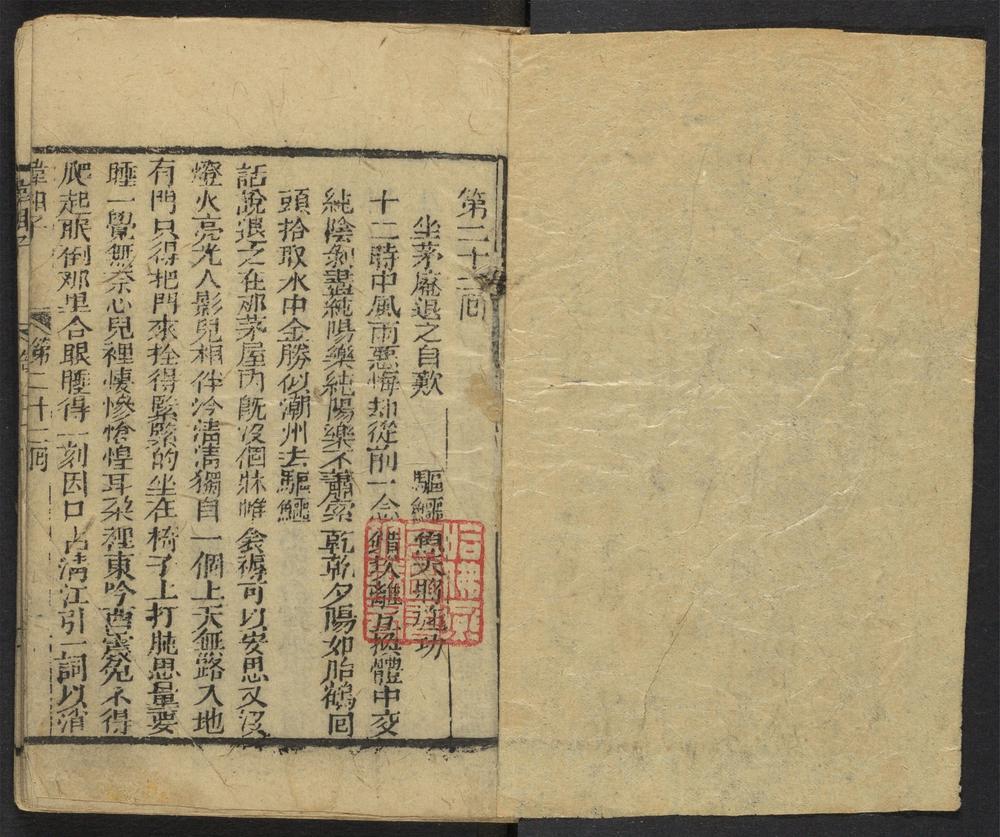 第二十二囘
坐茅庵退之自歎　驅鱷魚天將施功
十二時中風雨惡悔却從前一念錯坎離互換體中交
純陰剝盡純陽樂純陽樂不蕭索乾乾夕陽如胎鶴囘
頭拾取水中金勝似潮州去驅鱷
話說退之在那茅屋內旣沒個牀帷衾褥可以安思又沒
燈火亮光人影兒相伴冷清清獨自一個上天無路入地
有門只得把門來拴得緊緊的坐在椅子上打盹思量要
睡一覺無奈心兒裡悽慘慘惶耳朶裡東吟西震免不得
爬起眠倒那里合眼睡得一刻因口占清江引一詞以消
韓湘子　第二十二囘